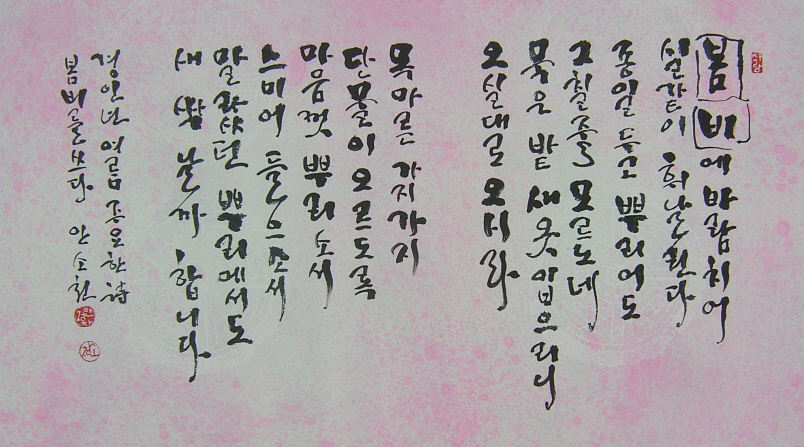 봄비에 바람치어
실같이 휘날린다
종일 두고 뿌리어도
그칠 줄 모르노네
묵은 밭 새 옷 입으리니
오실대로 오시라
목마른 가지가지
단물이 오르도록
마음껏 뿌리소서
스미어 들으소서
말랐던 뿌리에서도
새 싹 날까 합니다
경인년 여름 주요한 詩
봄비를 쓰다